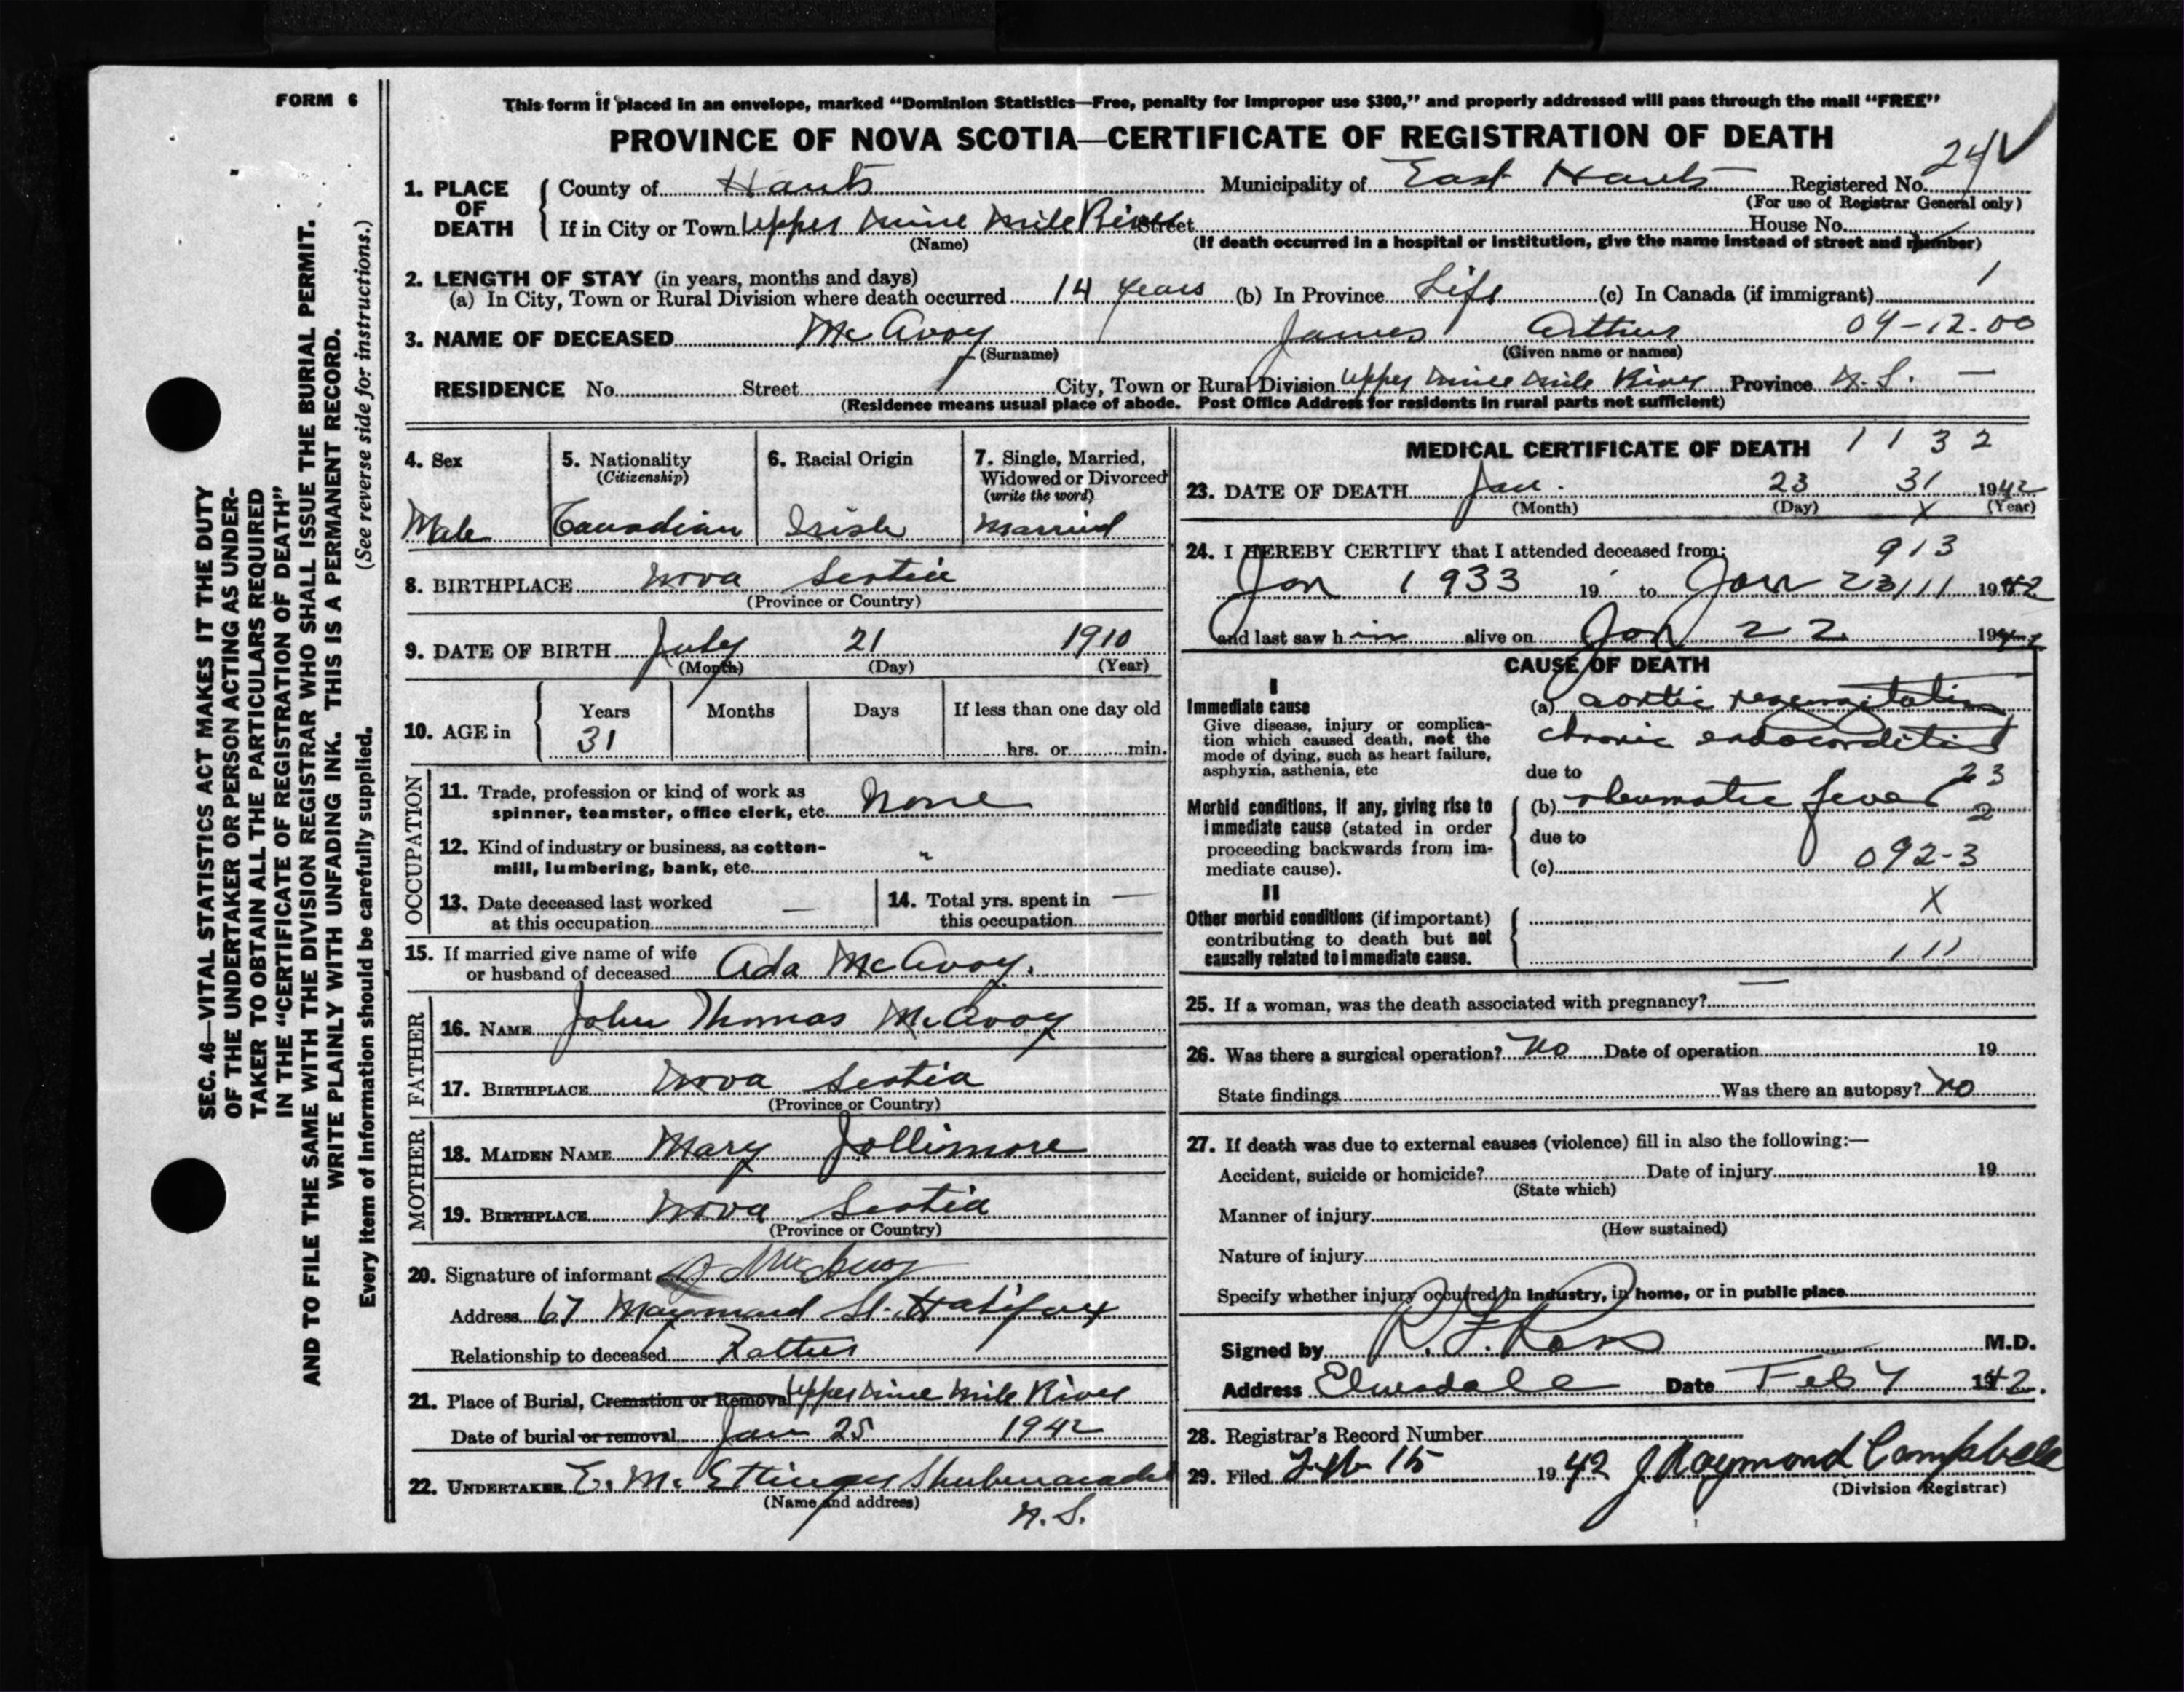 FORM 6
This form if placed in an envelope, marked “Dominion Statistics—Free, penalty for improper use $300,” and properly addressed will pass through the mail “FREE”
PROVINCE OF NOVA SCOTIA—CERTIFICATE OF REGISTRATION OF DEATH
24
1. PLACE OF DEATH County of Hants Municipality of East Hants Registered No.
(For use of Registrar General only)
If in City or Town Upper Nine Mile River Street House No.
(Name) (If death occurred in a hospital or institution, give the name instead of street and number)
2. LENGTH OF STAY (in years, months and days)
(a) In City, Town or Rural Division where death occurred 14 years (b) In Province Life (c) In Canada (if immigrant) 1
3. NAME OF DECEASED McAvoy James Arthur 09-12.00
(Surname) (Given name or names)
RESIDENCE No. Street City, Town or Rural Division Upper Nine Mile River Province N.S. —
(Residence means usual place of abode. Post Office Address for residents in rural parts not sufficient)
4. Sex
Male
5. Nationality
(Citizenship)
Canadian
6. Racial Origin
Irish
7. Single, Married,
Widowed or Divorced
(write the word)
Married
8. BIRTHPLACE Nova Scotia
(Province or Country)
9. DATE OF BIRTH July 21 1910
(Month) (Day) (Year)
10. AGE in Years Months Days If less than one day old
31 hrs. or min.
OCCUPATION
11. Trade, profession or kind of work as
spinner, teamster, office clerk, etc. None
12. Kind of industry or business, as cotton-
mill, lumbering, bank, etc. "
13. Date deceased last worked
at this occupation —
14. Total yrs. spent in
this occupation —
15. If married give name of wife
or husband of deceased Ada McAvoy.
FATHER
16. NAME John Thomas McAvoy
17. BIRTHPLACE Nova Scotia
(Province or Country)
MOTHER
18. MAIDEN NAME Mary Jollimore
19. BIRTHPLACE Nova Scotia
(Province or Country)
20. Signature of informant McAvoy
Address 67 Maynard St. Halifax
Relationship to deceased Father
21. Place of Burial, Cremation or Removal Upper Nine Mile River
Date of burial or removal Jan 25 1942
22. UNDERTAKER E. M. Ettinger Shubenacadie
(Name and address)
N.S.
MEDICAL CERTIFICATE OF DEATH 1 1 3 2
23. DATE OF DEATH Jan. 23 31 1942
(Month) (Day) X (Year)
24. I HEREBY CERTIFY that I attended deceased from: 913
Jan 1933 19 to Jan 23 11 1942
and last saw him alive on Jan 22 1942
CAUSE OF DEATH
I
Immediate cause
Give disease, injury or complica-
tion which caused death, not the
mode of dying, such as heart failure,
asphyxia, asthenia, etc
(a) aortic regurgitation
chronic endocarditis
due to 23
Morbid conditions, if any, giving rise to
immediate cause (stated in order
proceeding backwards from im-
mediate cause).
(b) rheumatic fever 2
due to
(c) 092-3
II
Other morbid conditions (if important)
contributing to death but not
causally related to immediate cause.
X
111
25. If a woman, was the death associated with pregnancy? —
26. Was there a surgical operation? No Date of operation 19
State findings Was there an autopsy? No
27. If death was due to external causes (violence) fill in also the following:—
Accident, suicide or homicide? Date of injury 19
(State which)
Manner of injury
(How sustained)
Nature of injury
Specify whether injury occurred in industry, in home, or in public place
Signed by R. F. Ross M.D.
Address Elmsdale Date Feb 7 1942.
28. Registrar's Record Number
29. Filed Feb 15 1942 J Raymond Campbell
(Division Registrar)
SEC. 46—VITAL STATISTICS ACT MAKES IT THE DUTY
OF THE UNDERTAKER OR PERSON ACTING AS UNDER-
TAKER TO OBTAIN ALL THE PARTICULARS REQUIRED
IN THE “CERTIFICATE OF REGISTRATION OF DEATH”
AND TO FILE THE SAME WITH THE DIVISION REGISTRAR WHO SHALL ISSUE THE BURIAL PERMIT.
WRITE PLAINLY WITH UNFADING INK. THIS IS A PERMANENT RECORD.
Every item of information should be carefully supplied. (See reverse side for instructions.)